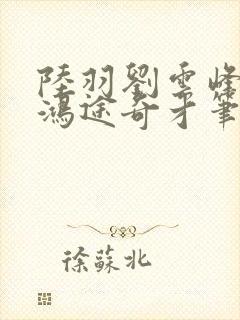 陸羽劉雲峰
鴻途奇才筆
徐蘇北